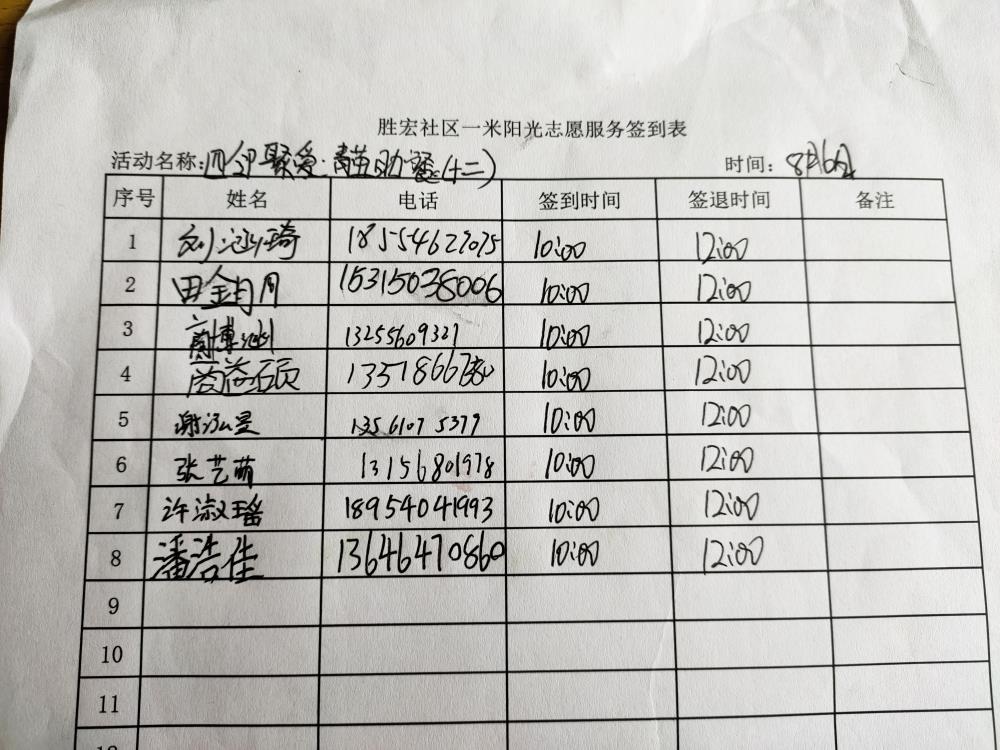 胜宏社区一米阳光志愿服务签到表
活动名称: 四邻聚爱·助餐(十二) 时间: 8月6日
序号 姓名 电话 签到时间 签退时间 备注
1 刘涵琦 18554627075 10:00 12:00
2 田 月 15315038006 10:00 12:00
3 博涵 13255609321 10:00 12:00
4 硕 10:00 12:00
5 谢泓昱 13561075379 10:00 12:00
6 张艺萌 13156801978 10:00 12:00
7 许淑瑶 18954041993 10:00 12:00
8 潘浩佳 13646470860 10:00 12:00
9
10
11